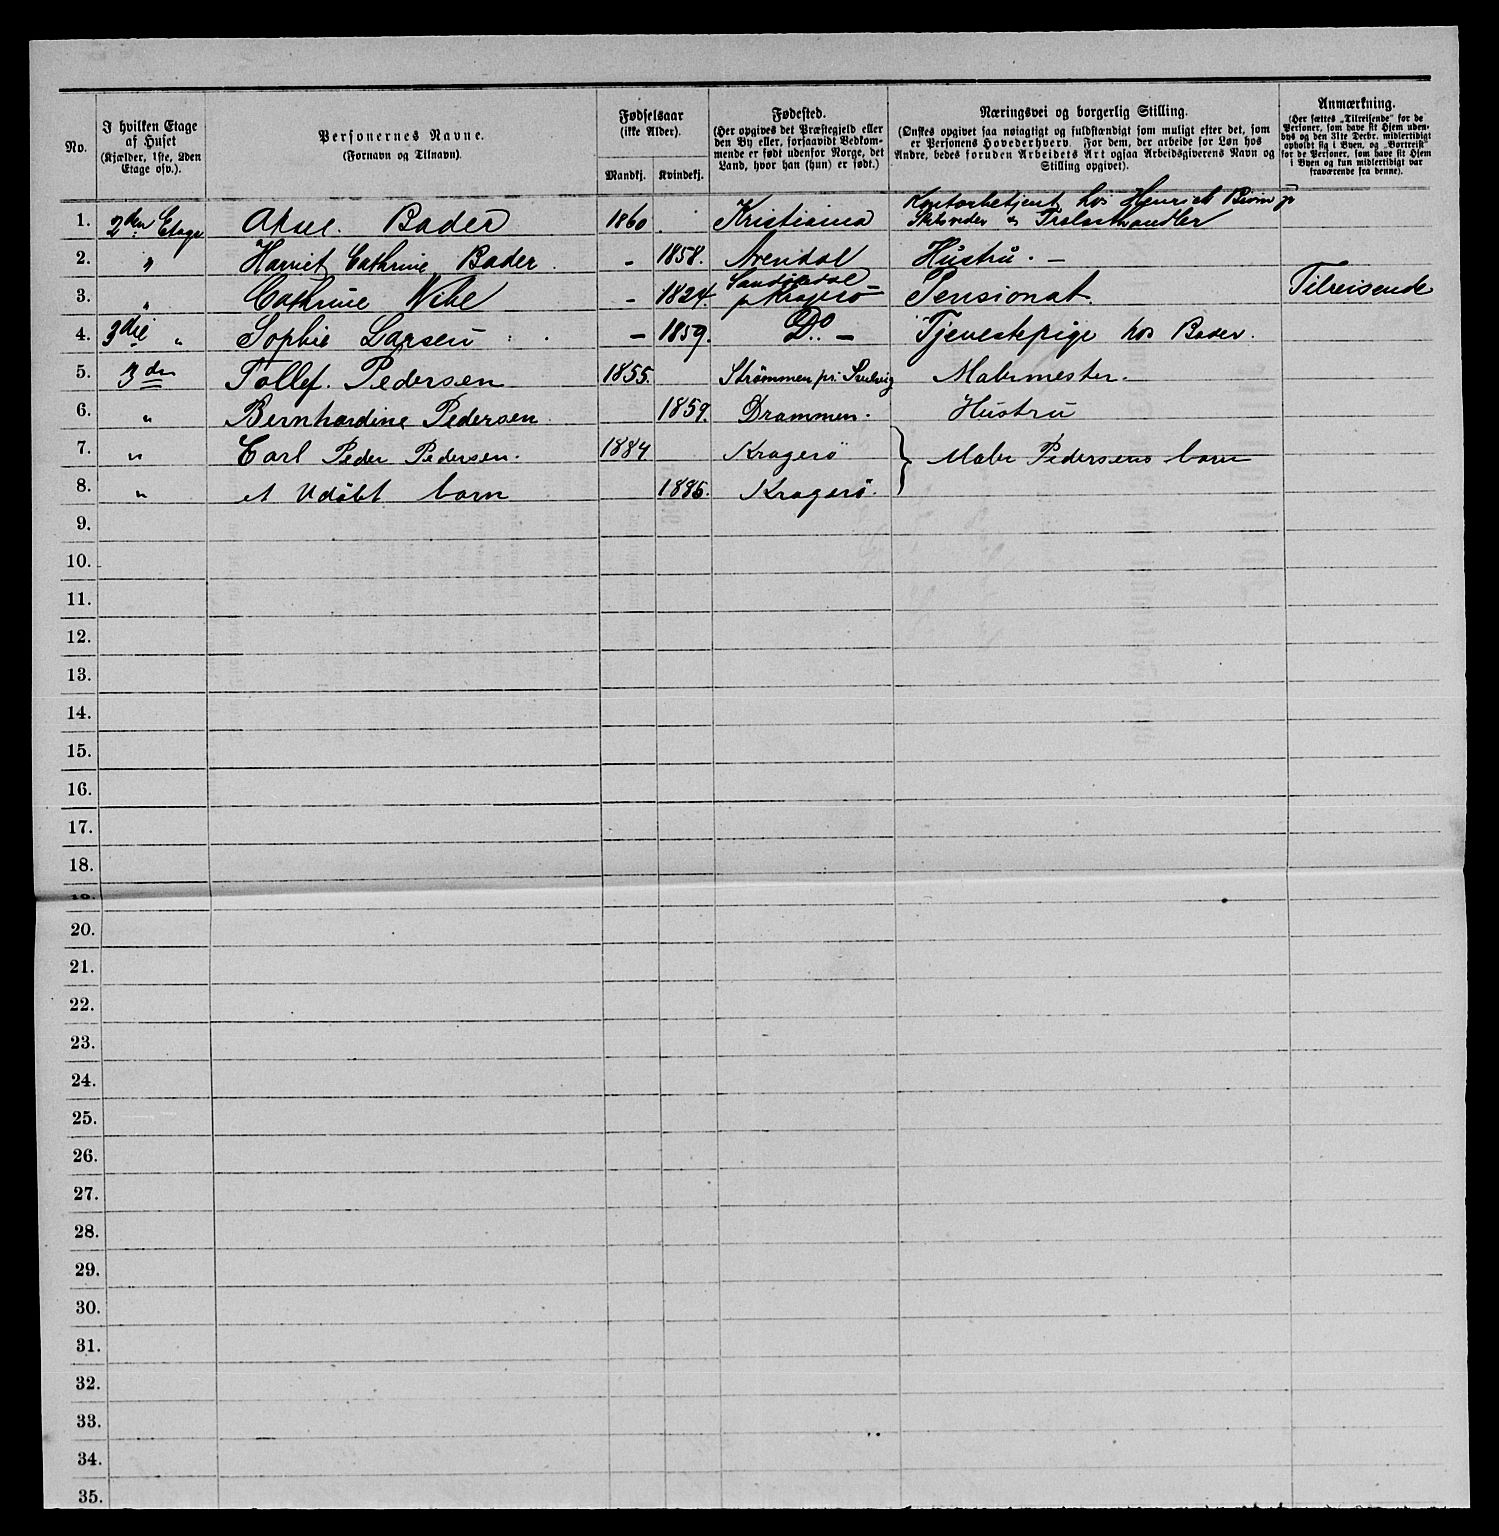 No.
I hvilken Etage af Huset
(Kjælder, 1ste, 2den Etage osv.).
Personernes Navne.
(Fornavn og Tilnavn).
Fødselsaar
(ikke Alder).
Mandkj. Kvindekj.
Fødested.
(Her opgives det Præstegjeld eller
den By eller, forsaavidt Vedkom-
mende er født udenfor Norge, det
Land, hvor han (hun) er født.)
Næringsvei og borgerlig Stilling.
(Ønskes opgivet saa nøiagtigt og fuldstændigt som muligt efter det, som
er Personens Hovederhverv. For dem, der arbeide for Løn hos
Andre, bedes foruden Arbeidets Art ogsaa Arbeidsgiverens Navn og
Stilling opgivet).
Anmærkning.
(Her sættes „Tilreisende" for de
Personer, som have sit Hjem uden-
bys og den 31te Decbr. midlertidigt
opholdt sig i Byen, og „Bortreist"
for de Personer, som have sit Hjem
i Byen og kun midlertidigt var
fraværende fra denne).
1. 2den Etage Axel. Bader 1860 Kristiania Kontorbetjent hos Henrik & Tralasthandler
2. " Harriet Cathrine Bader. - 1858. Arendal Hustru. -
3. " Cathrine Vibe - 1824. Sandøkedal p Kragerø Pensionat. Tilreisende
4. 3die " Sophie Larsen - 1859. Do. - Tjenestepige hos Bader.
5. 3die Tollef. Pedersen 1855. Strømmen pr. Svelvig Malermester.
6. " Bernhardine Pedersen. 1859. Drammen. Hustru
7. " Carl Peder Pedersen. 1884 Kragerö } Maler Pedersens born
8. " et Udöbt barn 1886. Kragerö.
9.
10.
11.
12.
13.
14.
15.
16.
17.
18.
19.
20.
21.
22.
23.
24.
25.
26.
27.
28.
29.
30.
31.
32.
33.
34.
35.